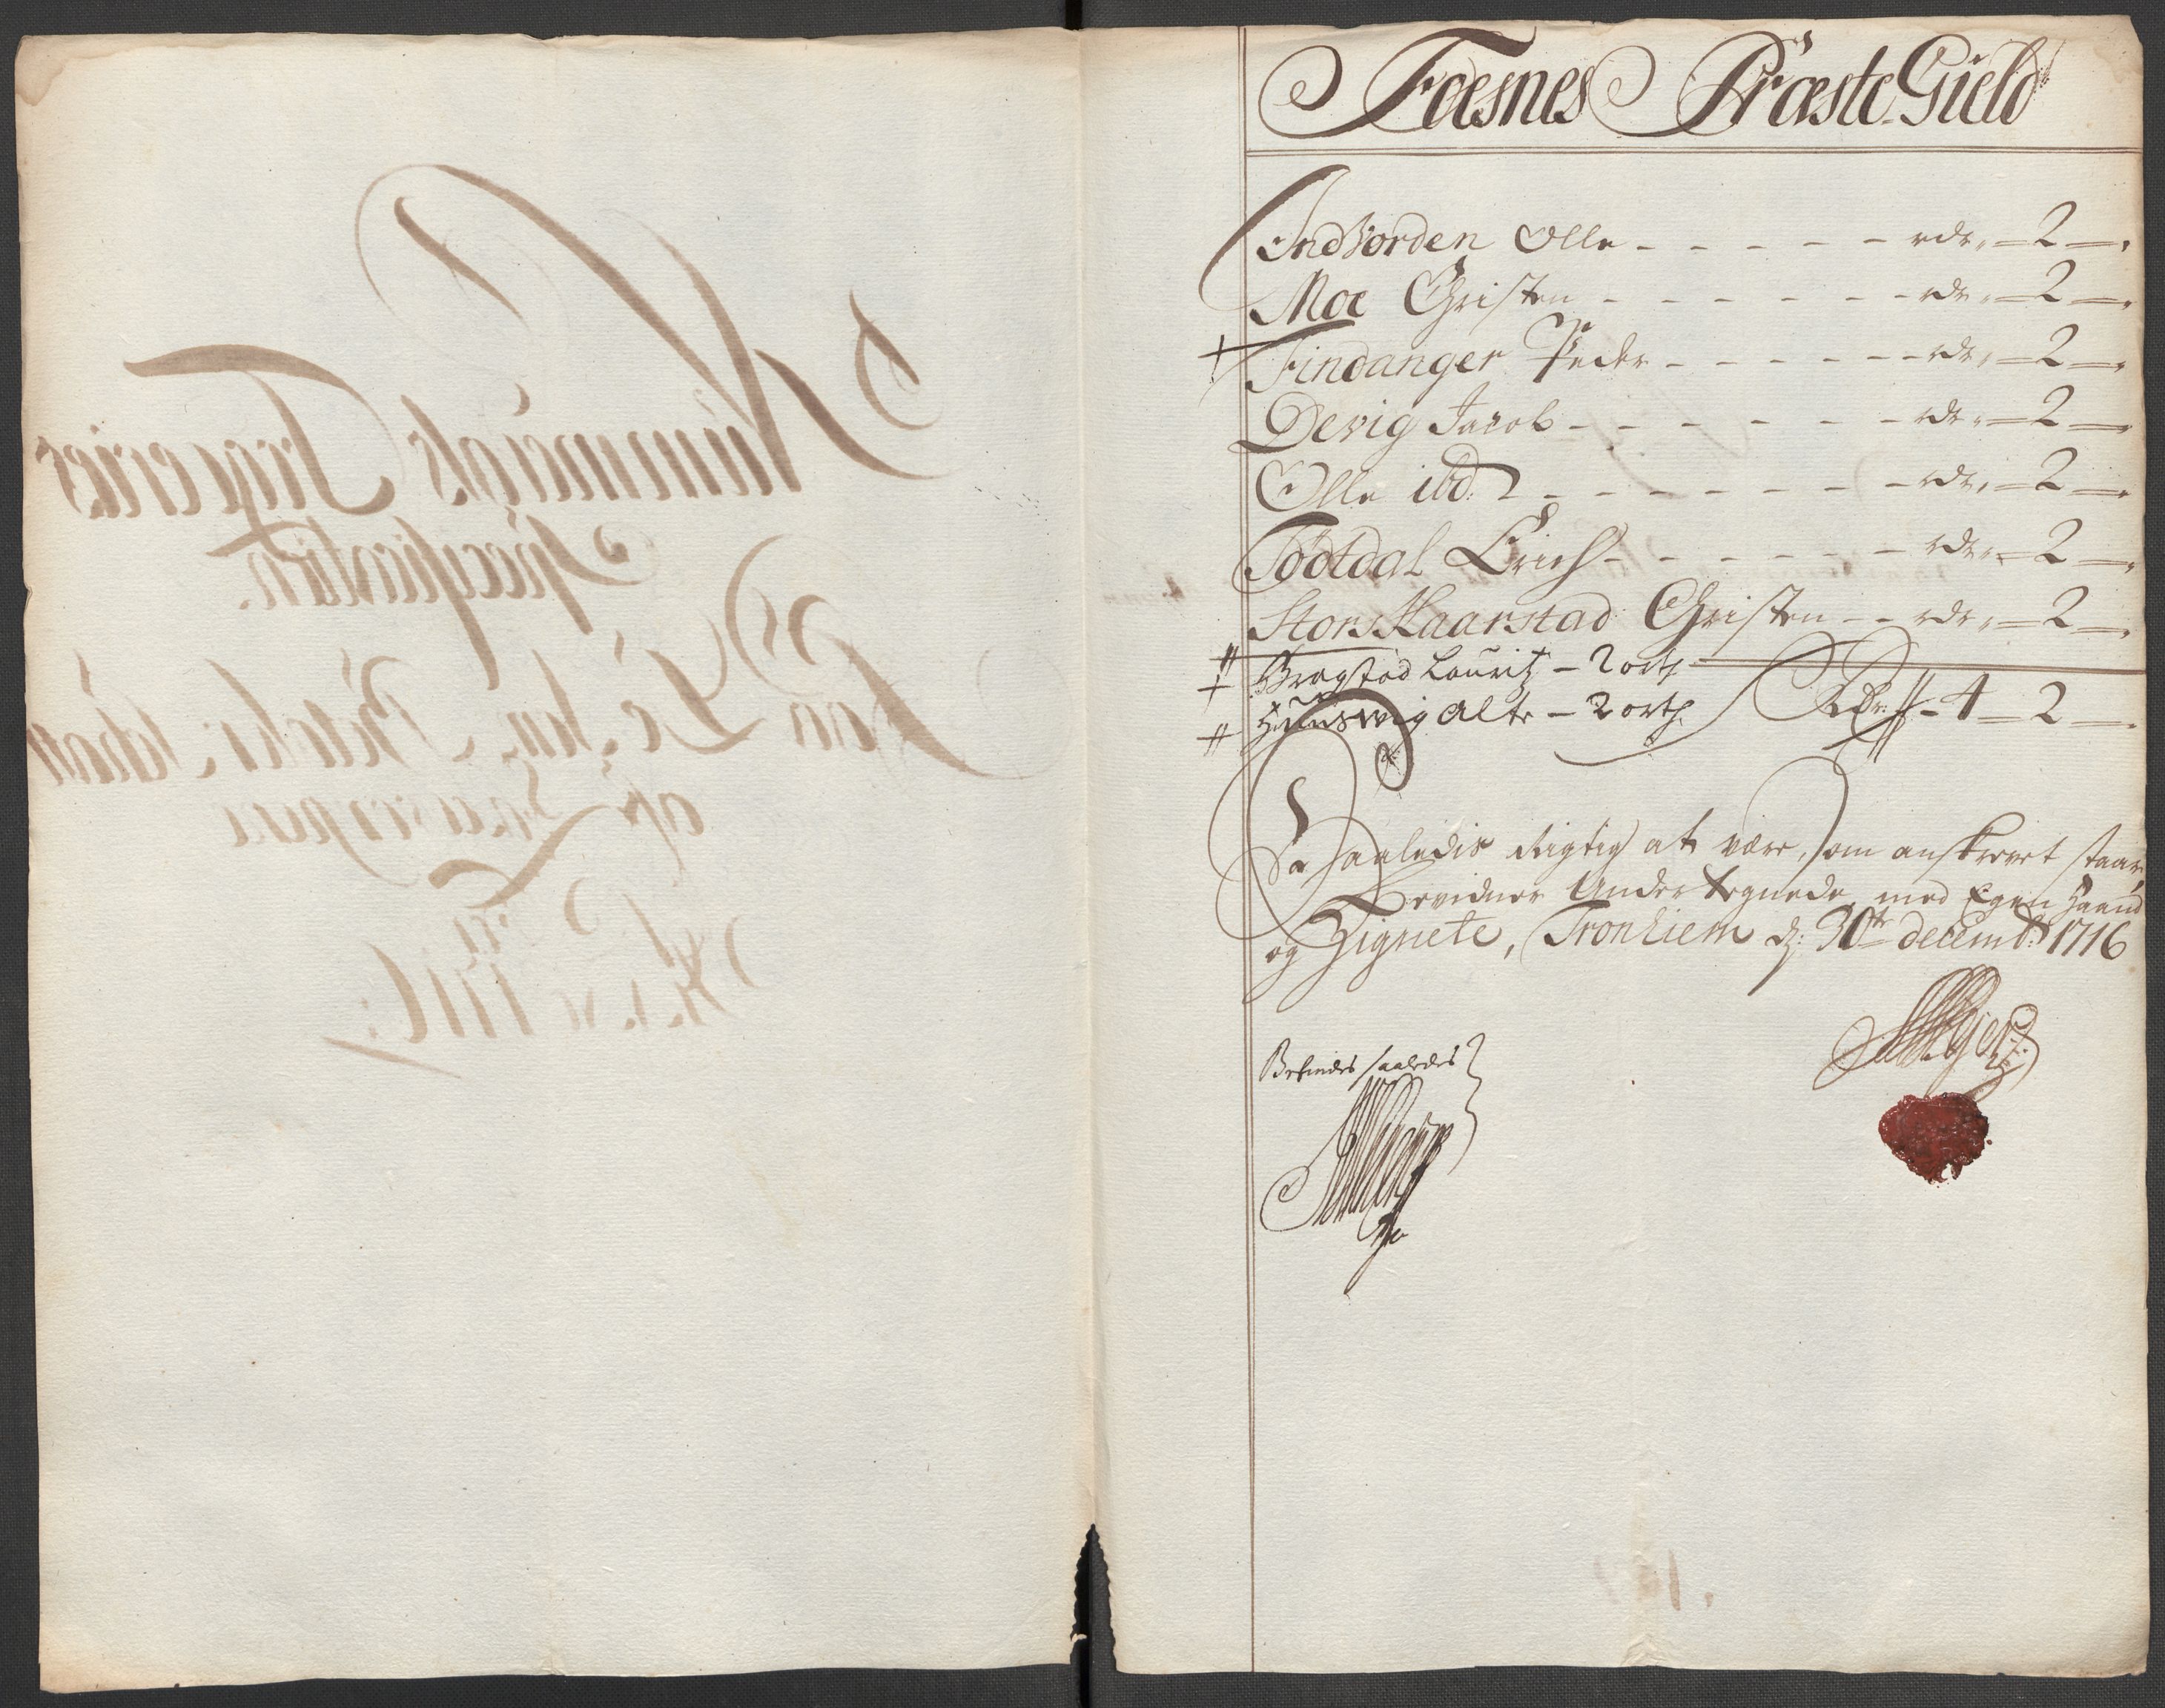 Foesnes Præste-Gield
Indvorden Olle - - - - - rdr. = 2 =
Moe Christen - - - - - - rdr. = 2 =
Findanger Peder - - - - - rdr. = 2 =
Devig Jacob - - - - - - rdr. = 2 =
Olle ibd. - - - - - - - rdr. = 2 =
Tødtdal Erich - - - - - - rdr. = 2 =
Stor Haarstad Christen - - rdr. = 2 =
Bragstad Lauritz - 2 orth
Alte - 2 orth Rdr. - 4 = 2 =
Saaledis Rigtig at være, som anskrevet staar,
Bevidner Undertegnede, med Egen Haand
og Zignete, Tronhiem d: 30te decembr: 1716
Befindes saaledes
Nummedals
Specification
af
1716